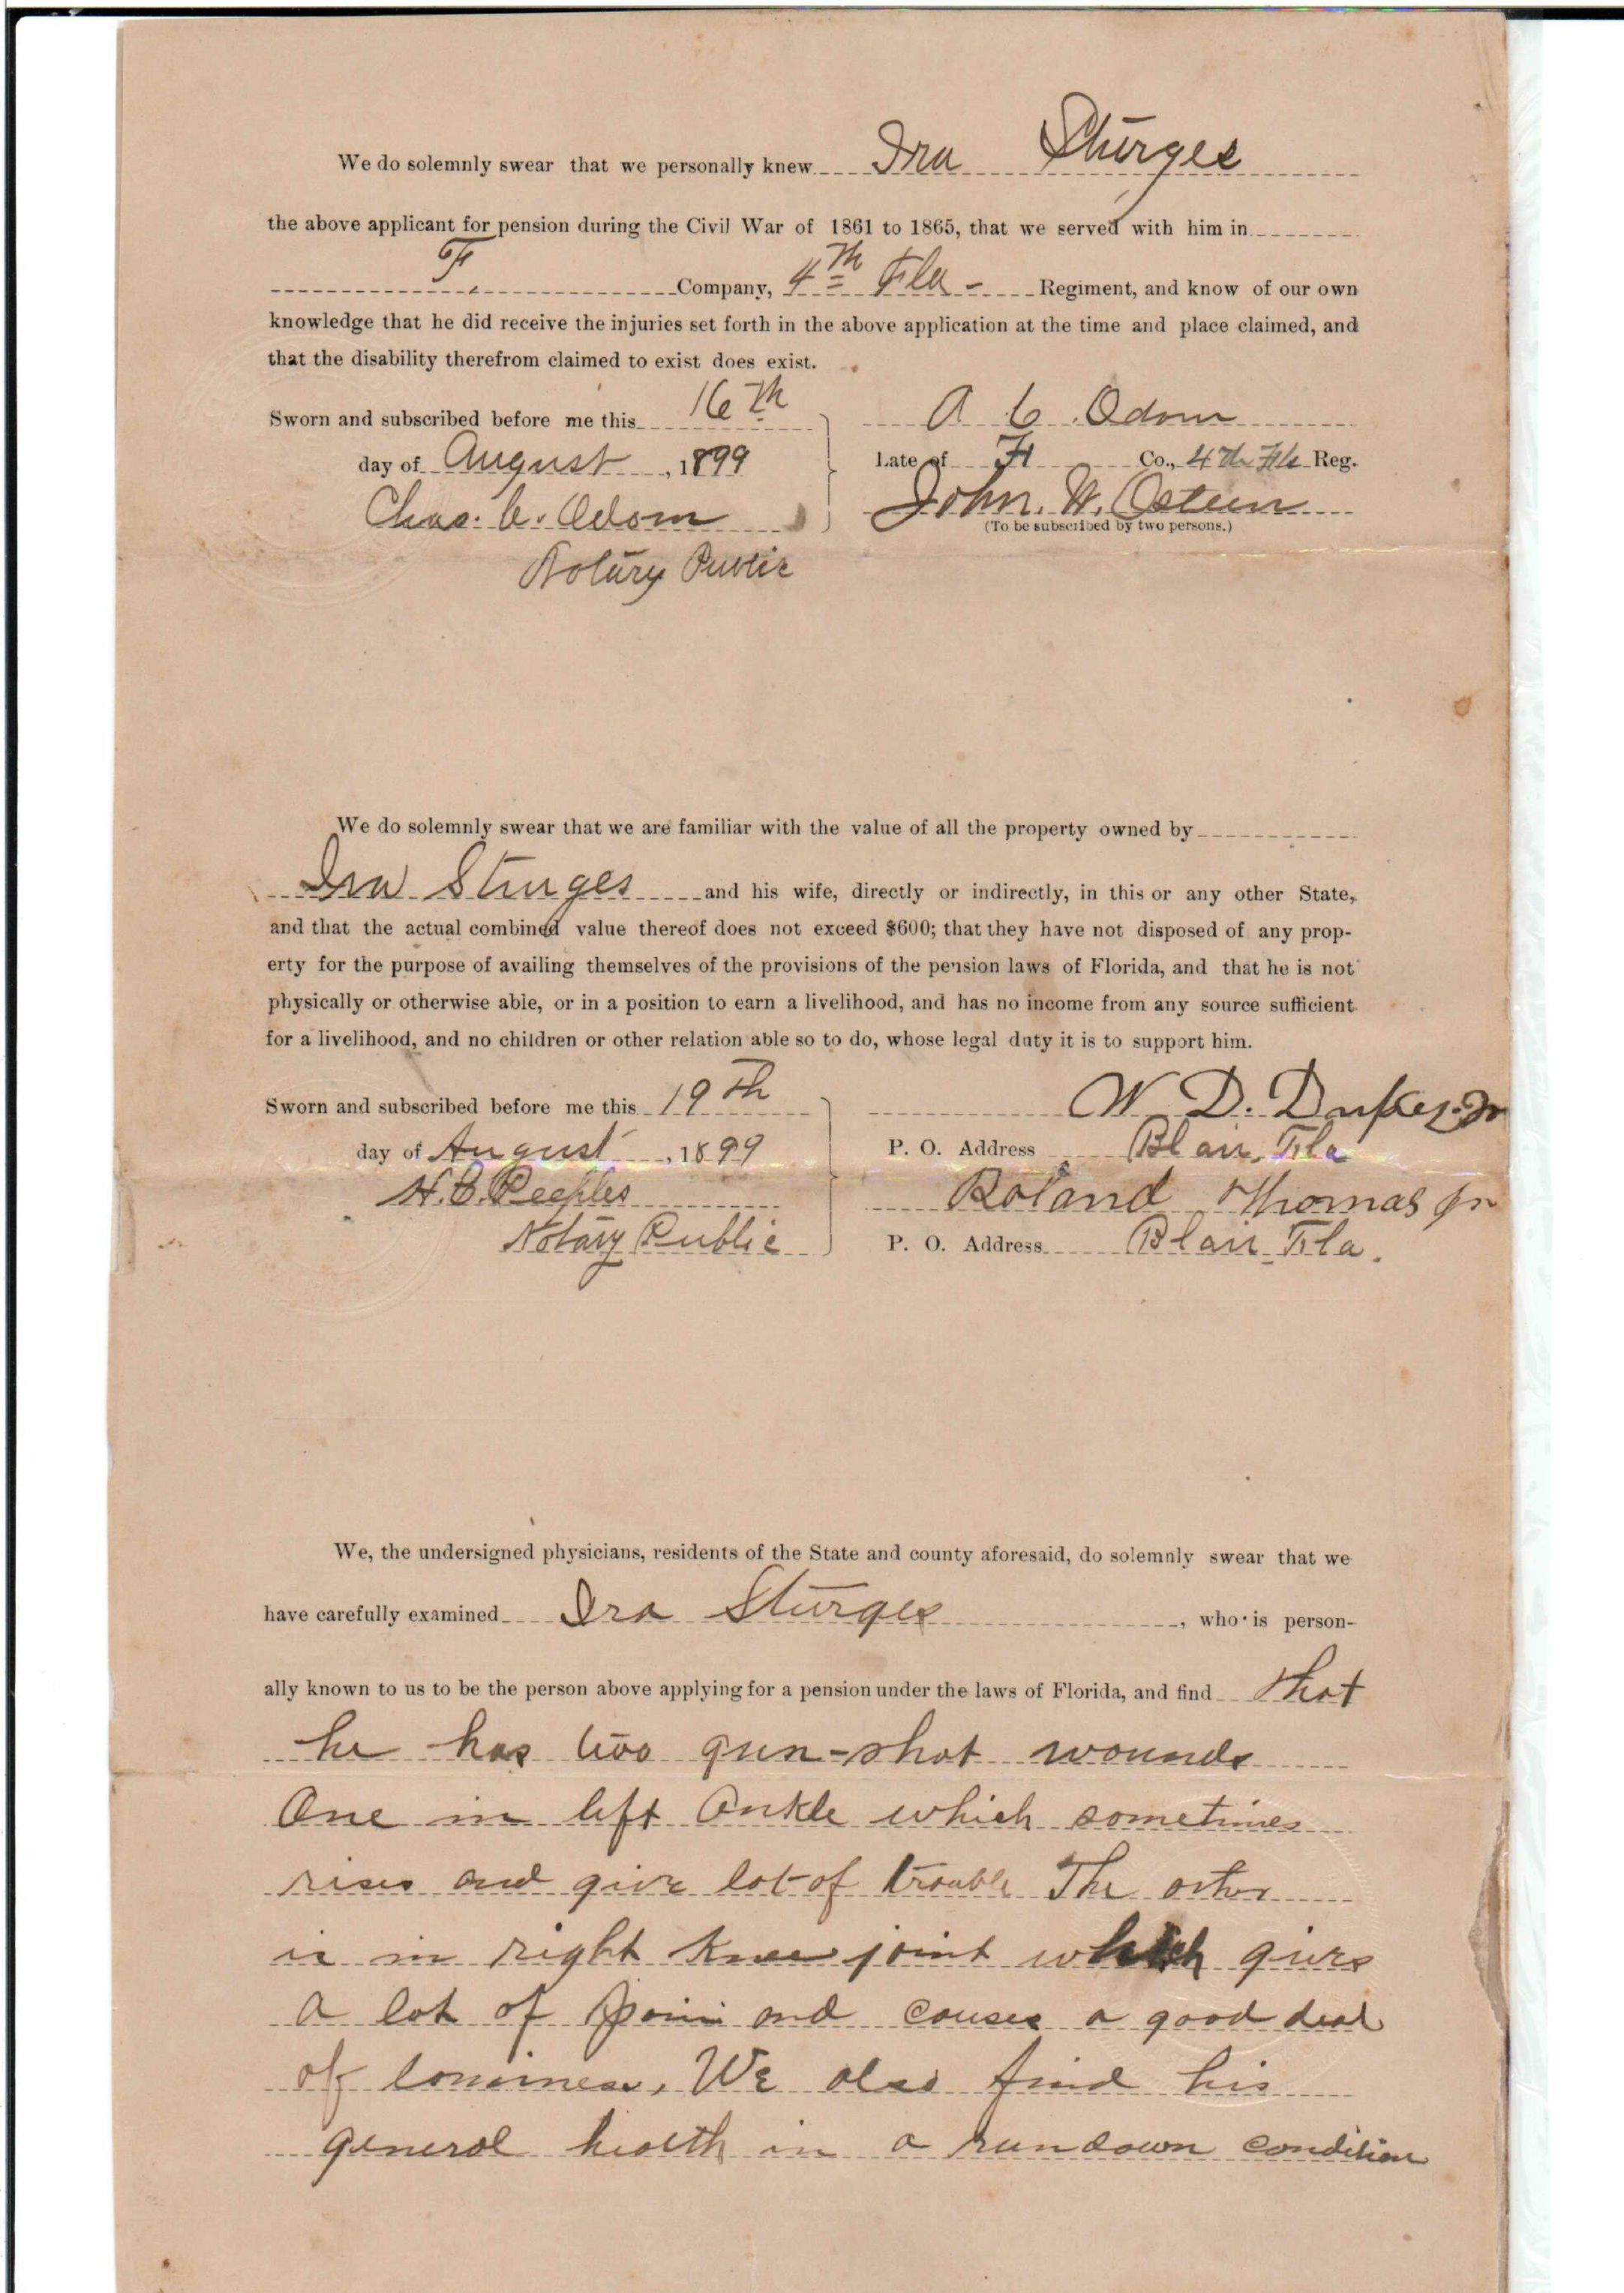 We do solemnly swear that we personally knew Ira Sturges
the above applicant for pension during the Civil War of 1861 to 1865, that we served with him in
F Company, 4th Fla - Regiment, and know of our own
knowledge that he did receive the injuries set forth in the above application at the time and place claimed, and
that the disability therefrom claimed to exist does exist.
Sworn and subscribed before me this 16th
day of August, 1899
Chas. C. Odom
Notary Public
A C. Odom
Late of F Co., 4th Fla Reg.
John. W. Osteen
(To be subscribed by two persons.)
We do solemnly swear that we are familiar with the value of all the property owned by
Ira Sturges and his wife, directly or indirectly, in this or any other State,
and that the actual combined value thereof does not exceed $600; that they have not disposed of any prop-
erty for the purpose of availing themselves of the provisions of the pension laws of Florida, and that he is not
physically or otherwise able, or in a position to earn a livelihood, and has no income from any source sufficient
for a livelihood, and no children or other relation able so to do, whose legal duty it is to support him.
Sworn and subscribed before me this 19th
day of August, 1899
H. C. Peeples
Notary Public
W. D. Jr
P. O. Address Blair, Fla
Roland Thomas Jr
P. O. Address Blair, Fla.
We, the undersigned physicians, residents of the State and county aforesaid, do solemnly swear that we
have carefully examined Ira Sturges, who is person-
ally known to us to be the person above applying for a pension under the laws of Florida, and find that
he has two gun-shot wounds
One in left Ankle which sometimes
rises and give lot of trouble The other
is in right Knee joint which givs
a lot of pain and causes a good deal
of lameness. We also find his
general health in a rundown condition